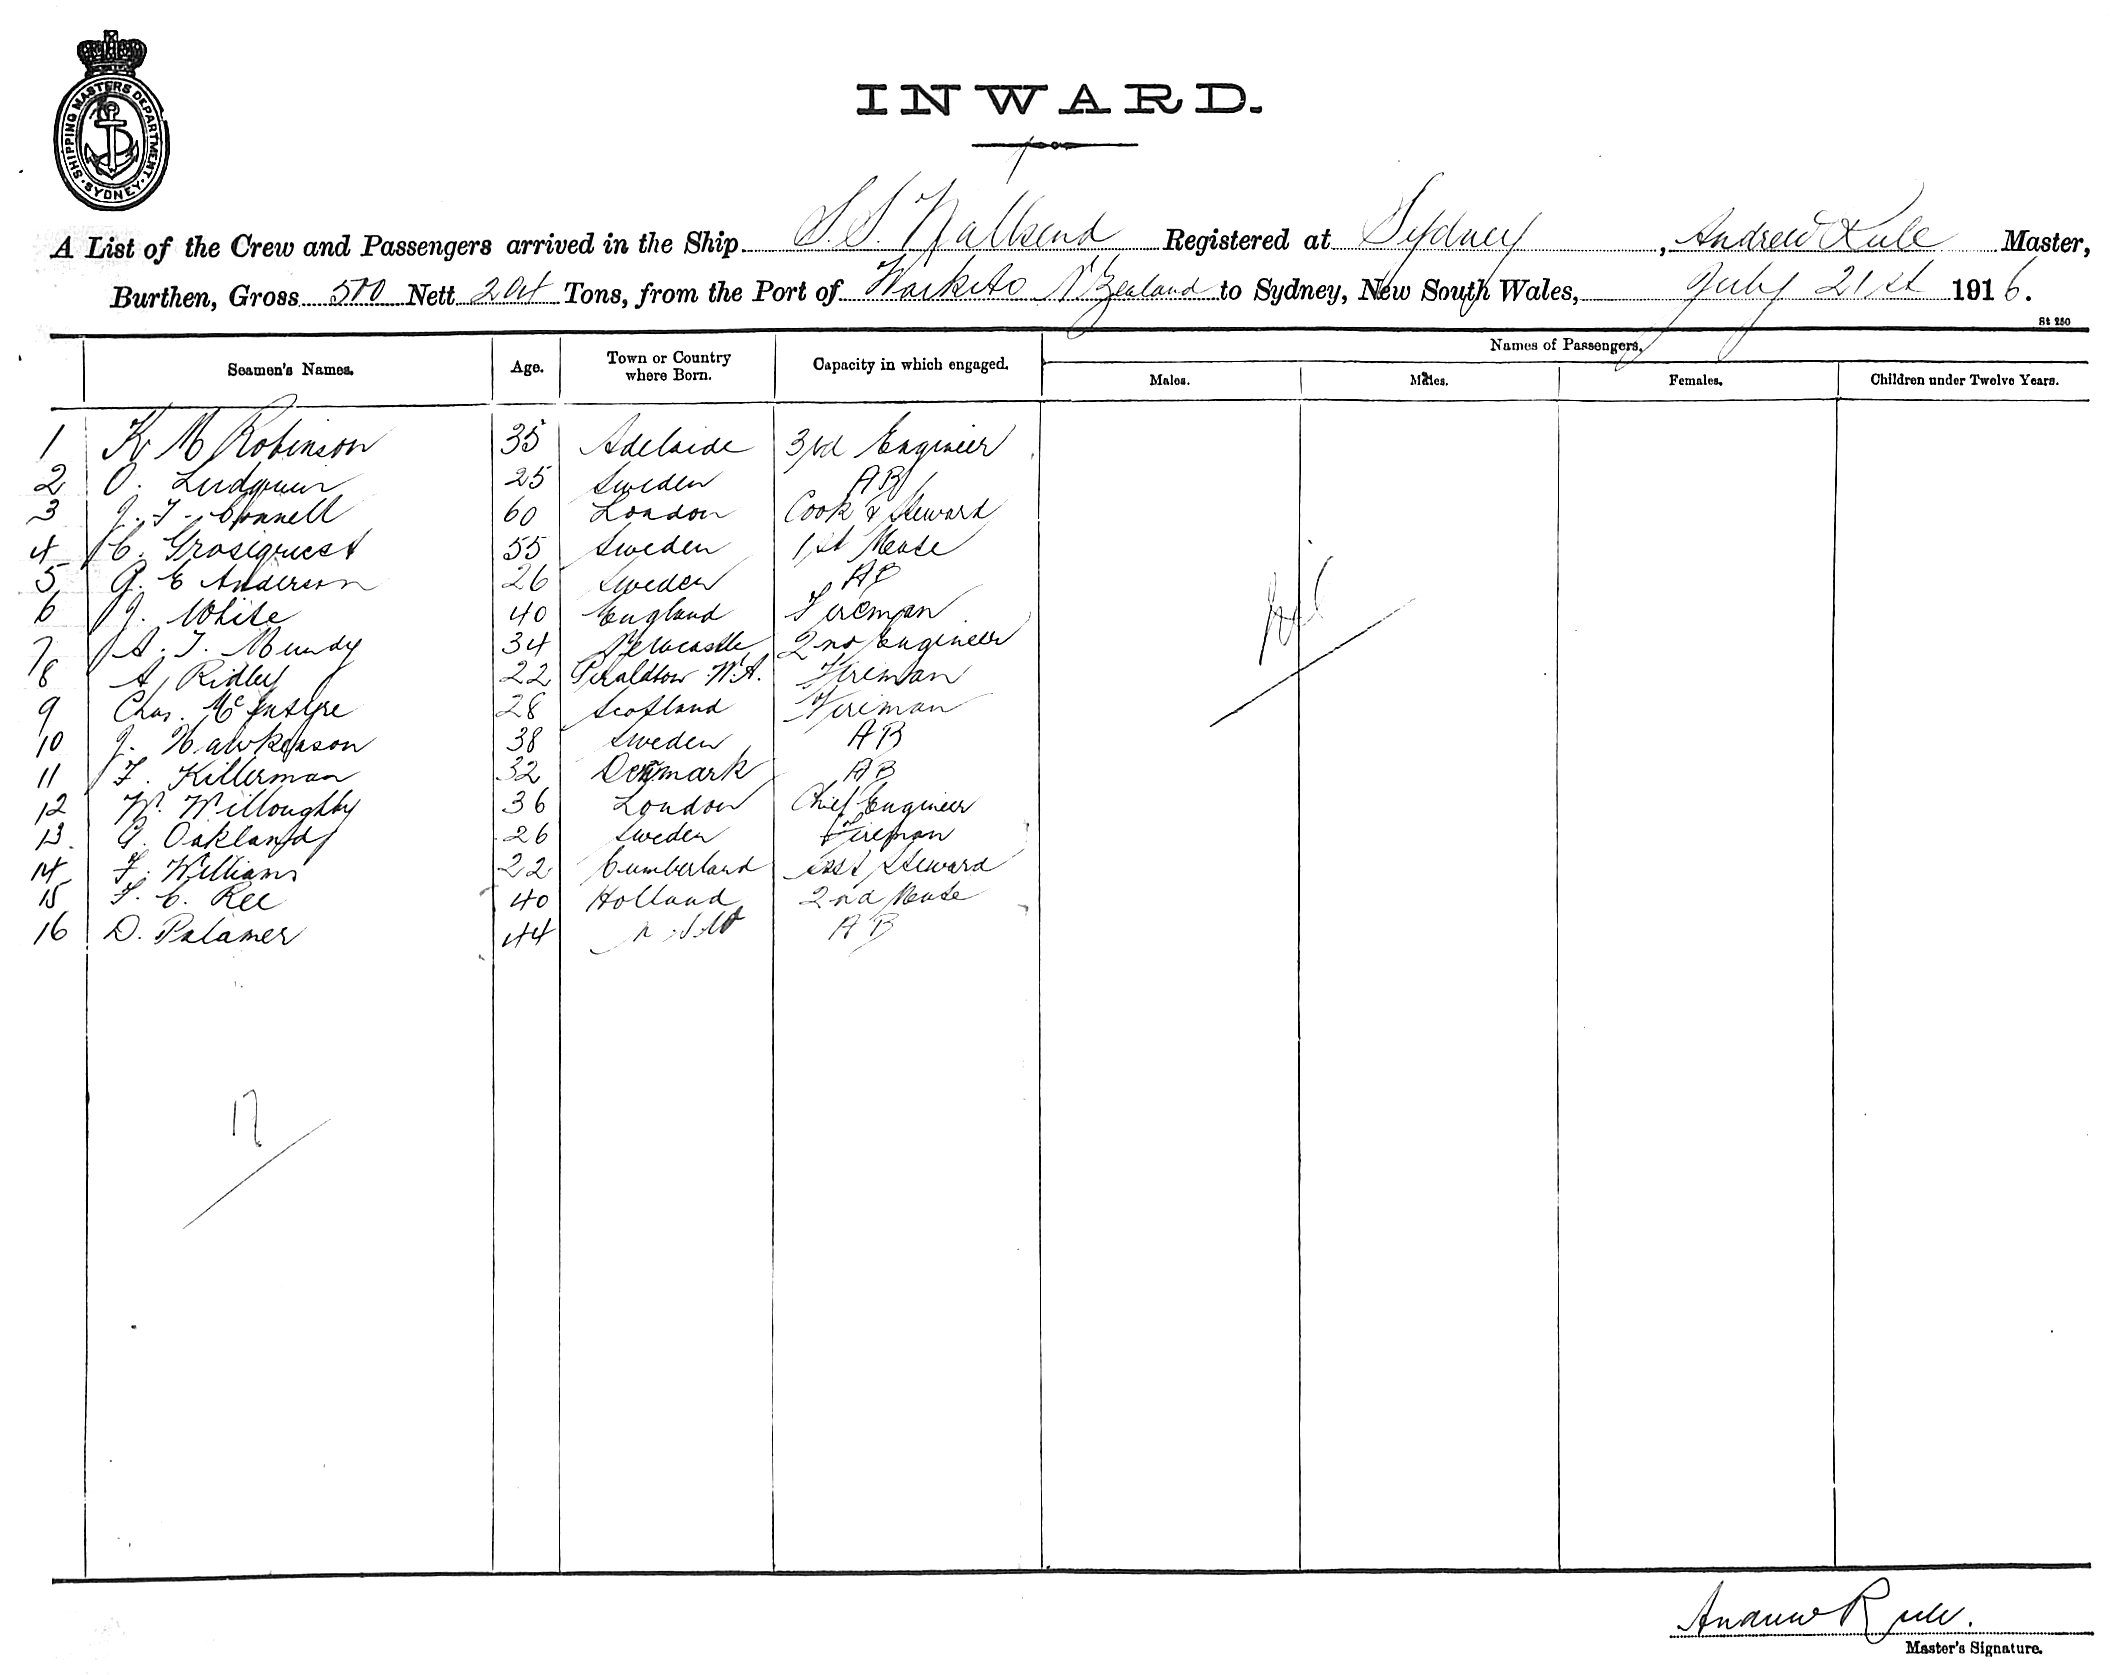 SHIPPING MASTERS DEPARTMENT. SYDNEY
INWARD.
A List of the Crew and Passengers arrived in the Ship S.S. Wallsend Registered at Sydney, Andrew Rule Master,
Burthen, Gross 510 Nett 204 Tons, from the Port of N Zealand to Sydney, New South Wales, July 21st 1916.
St 250
Seamen's Names. Age. Town or Country where Born. Capacity in which engaged. Names of Passengers.
Males. Males. Females. Children under Twelve Years.
1 K M Robinson 35 Adelaide 3rd Engineer
2 O. 25 Sweden AB
3 J. T. Connell 60 London Cook & Steward
4 C. 55 Sweden 1st Mate
5 G. E Anderson 26 Sweden AB
6 J. White 40 England Fireman
7 A. T. Mundy 34 Newcastle 2nd Engineer
8 A Ridley 22 Geraldton W.A. Fireman
9 Chas. McIntyre 28 Scotland Fireman
10 J. Hawkenson 38 Sweden AB
11 F. Killerman 32 Denmark AB
12 W. Willoughby 36 London Chief Engineer
13. G. Oakland 26 Sweden Fireman
14 F. Williams 22 Cumberland Asst Steward
15 F. C. Ree 40 Holland 2nd Mate
16 D. Palamer 44 AB
Nil
17
Andrew Rule.
Master's Signature.